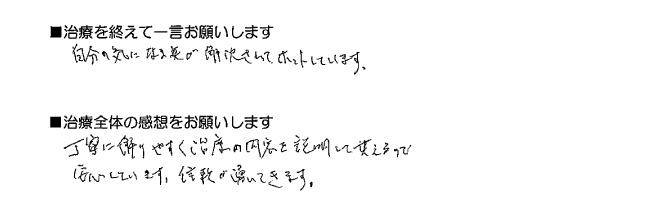 ■治療を終えて一言お願いします
自分の気になる点が解決されてホットしています。
■治療全体の感想をお願いします
丁寧に解りやすく治療の内容を説明して貰えるので
安心しています。信頼が湧いてきます。